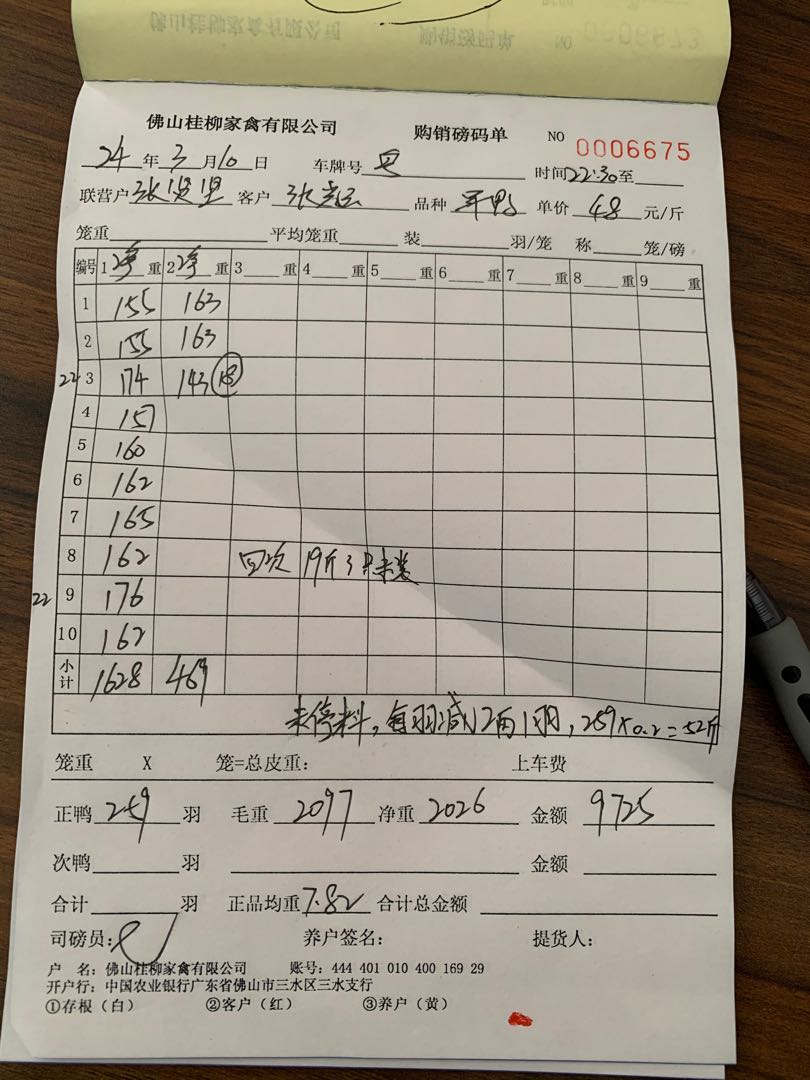 佛山桂柳家禽有限公司 购销磅码单 NO 0006675
24 年 3 月 10 日 车牌号 时间 22:30 至
联营户 张 客户 张 品种 鸭 单价 4.8 元/斤
笼重 平均笼重 装 羽/笼 称 笼/磅
编号 1 净 重 2 净 重 3 重 4 重 5 重 6 重 7 重 8 重 9 重
1 155 163
2 155 163
22 3 174 143 18
4 157
5 160
6 162
7 165
8 162 回次 19斤3只未装
22 9 176
10 162
小计 1628 469
未停料,每羽减2两1羽,259×0.2=52斤
笼重 X 笼=总皮重: 上车费
正鸭 259 羽 毛重 2097 净重 2026 金额 9725
次鸭 羽 金额
合计 羽 正品均重 7.82 合计总金额
司磅员: 养户签名: 提货人:
户 名: 佛山桂柳家禽有限公司 账号: 444 401 010 400 169 29
开户行: 中国农业银行广东省佛山市三水区三水支行
①存根(白) ②客户(红) ③养户(黄)